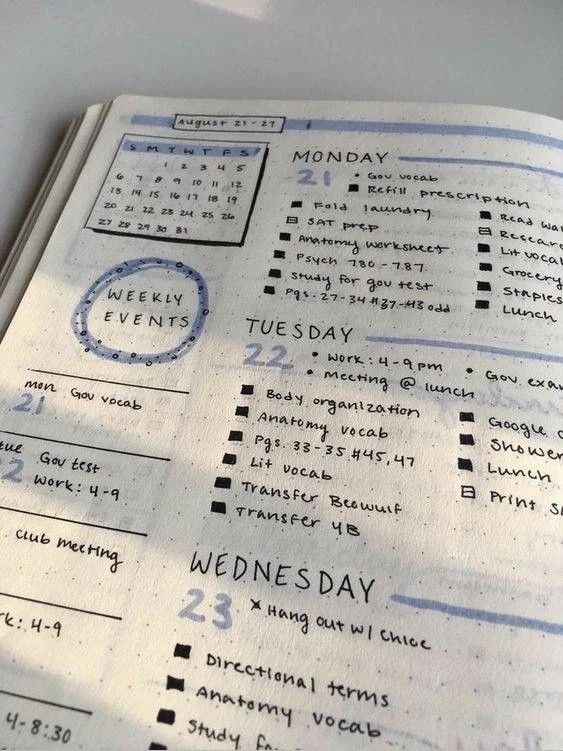 August 21-27
S M T W T F S
1 2 3 4 5
6 7 8 9 10 11 12
13 14 15 16 17 18 19
20 21 22 23 24 25 26
27 28 29 30 31
WEEKLY
EVENTS
mon Gov vocab
21
tue Gov test
2 work: 4-9
club meeting
4-9
4-8:30
MONDAY
21
Gov vocab
Refill prescription
Fold laundry
SAT prep
Anatomy worksheet
Psych 780-787
Study for gov test
Pgs. 27-34 #37-43 odd
Read
Lit
Grocery
Staples
Lunch
TUESDAY
22
work: 4-9pm
Gov
meeting @ lunch
Body organization
Anatomy vocab
Pgs. 33-35 #45,47
Lit vocab
Transfer Beowulf
Transfer 4B
Google
Shower
Lunch
Print
WEDNESDAY
23
Hang out w/ Chloe
Directional terms
Anatomy vocab
Study